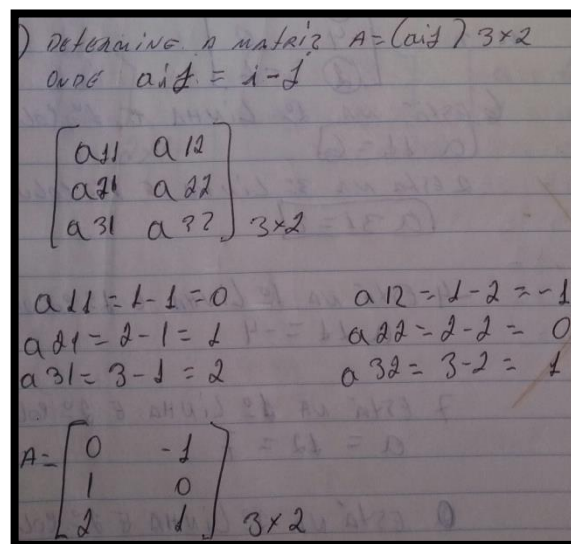 ) DETERMINE A MATRIZ A=(aij) 3×2
ONDE aij = i-j
a11 a12
a21 a22
a31 a32 3×2
a11 = 1-1 = 0 a12 = 1-2 = -1
a21 = 2-1 = 1 a22 = 2-2 = 0
a31 = 3-1 = 2 a32 = 3-2 = 1
A= 0 -1
1 0
2 1 3×2